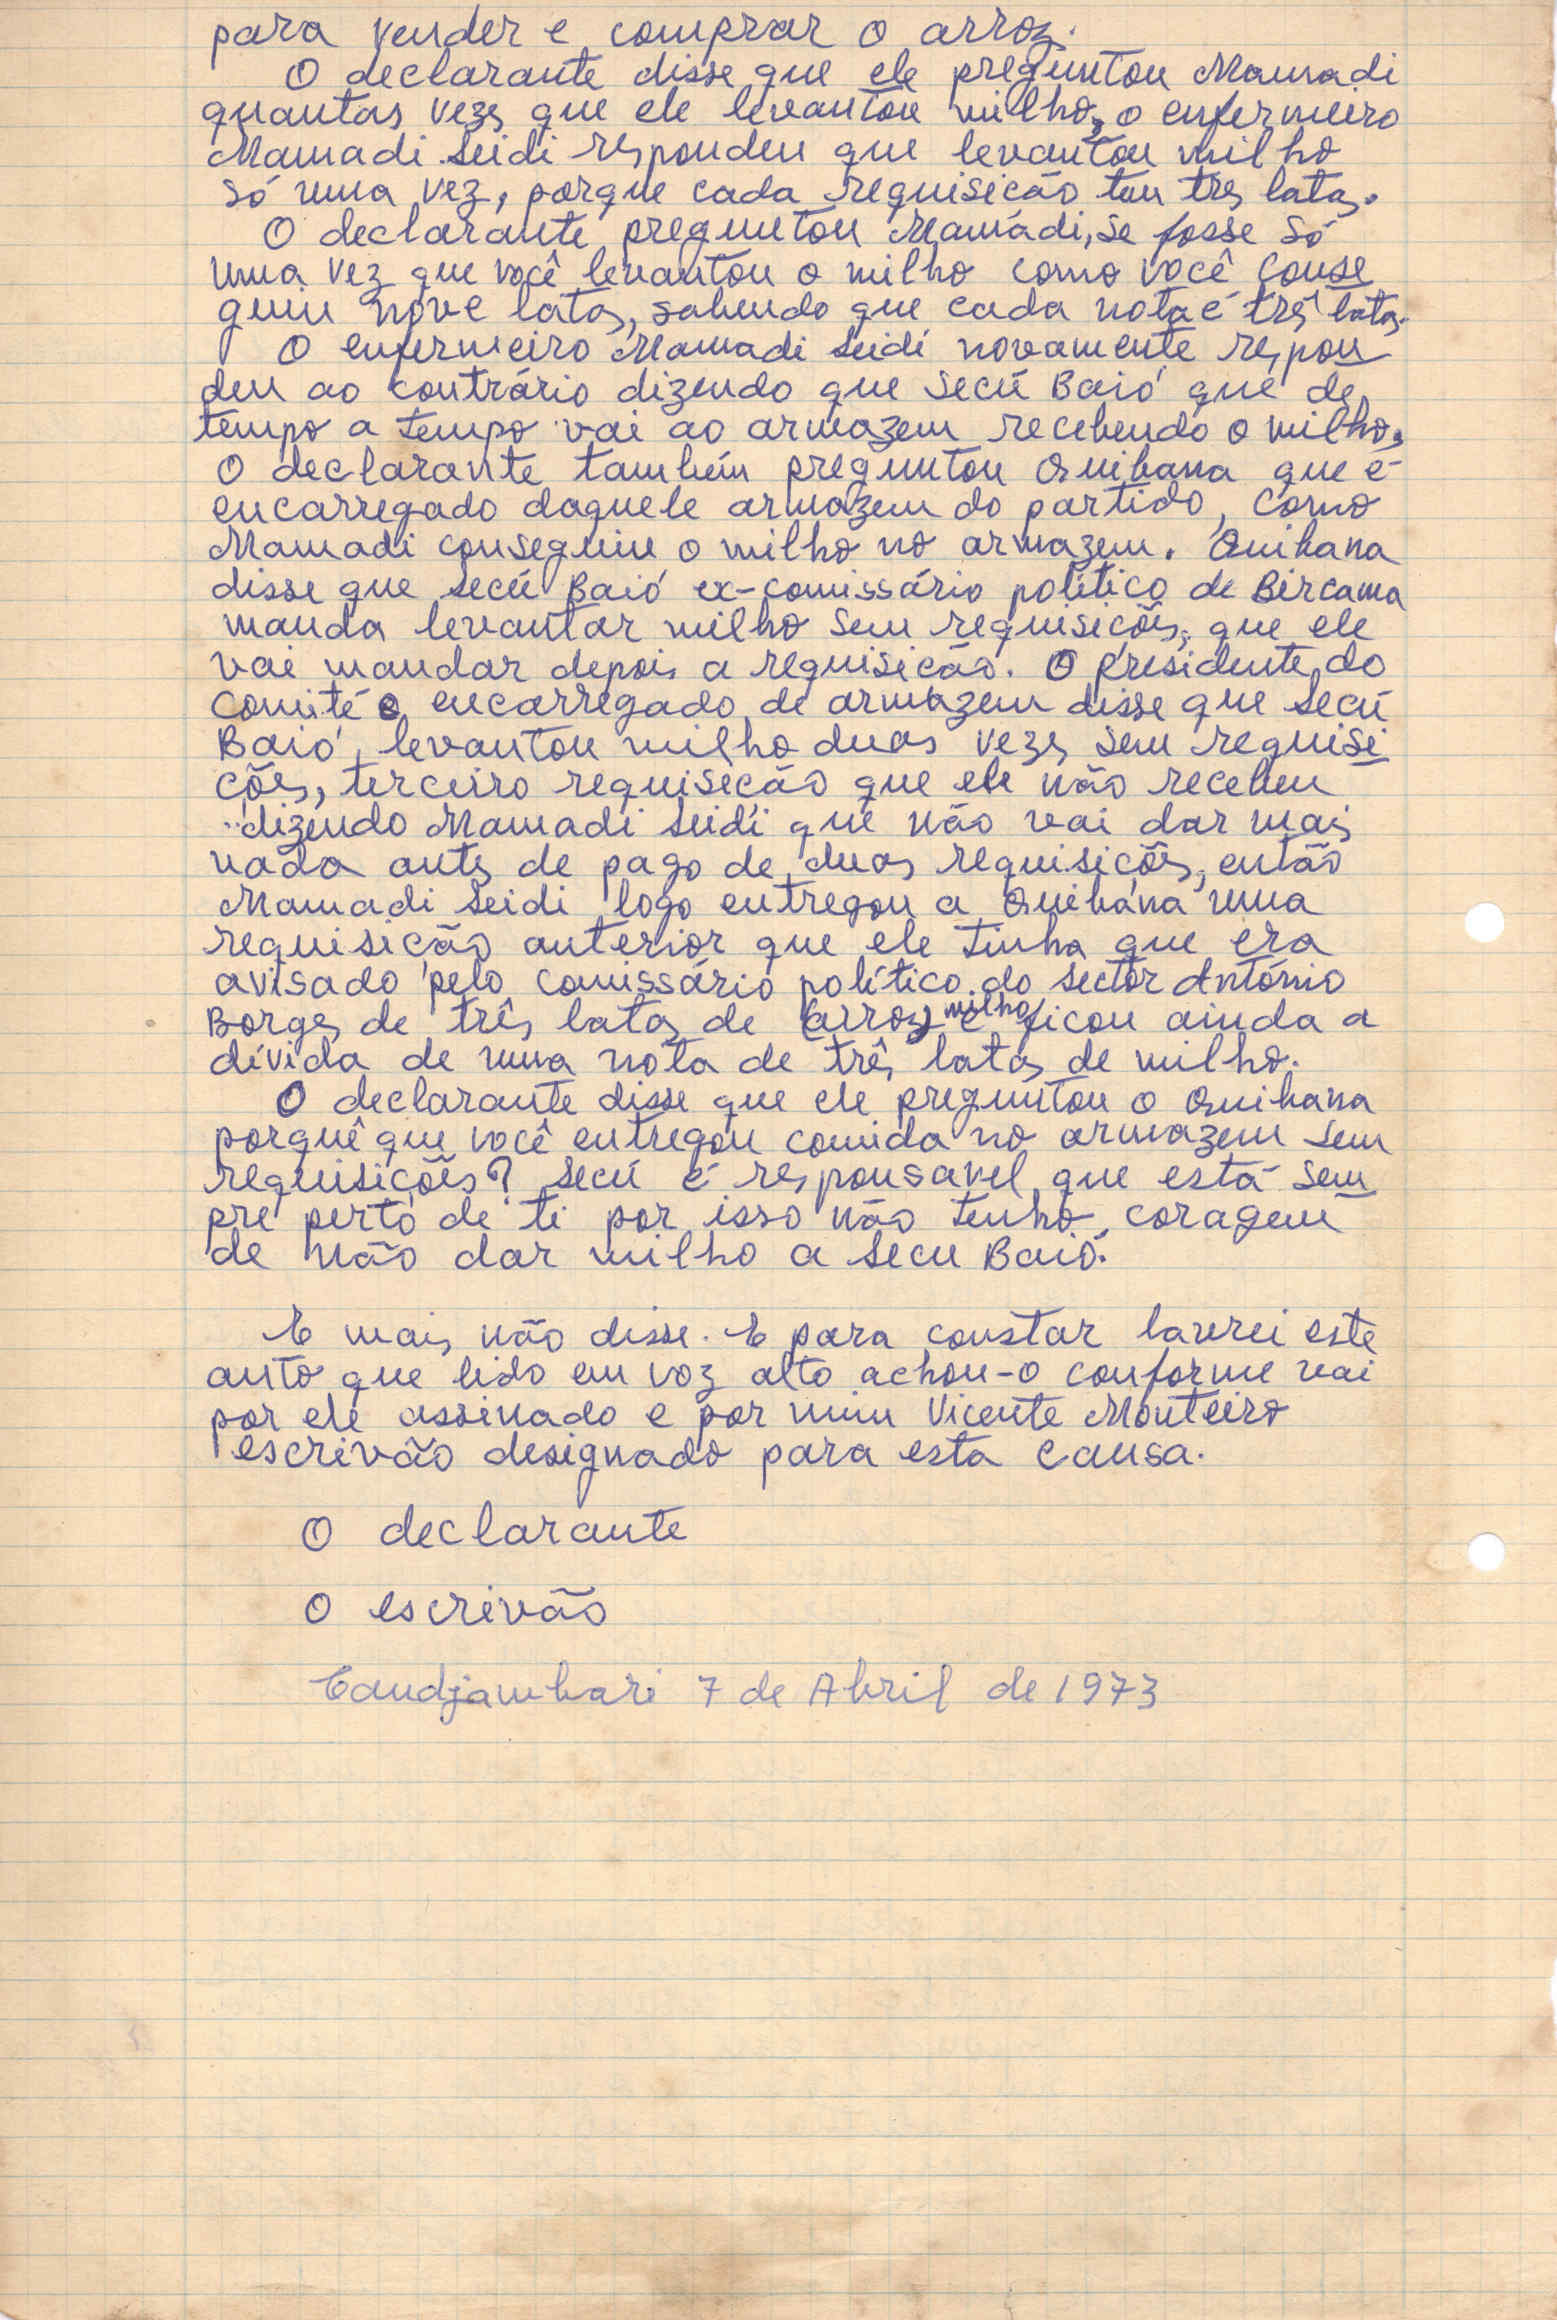 para vender e comprar o arroz.
O declarante disse que ele preguntou Mamadi
quantas vezes que ele levantou milho, o enfermeiro
Mamadi Seidi respondeu que levantou milho
só uma vez, porque cada requisicão tem tres latas.
O declarante preguntou Mamádi, se fosse só
uma vez que você levantou o milho como você conse
guiu nove latas, sabendo que cada nota é três latas.
O enfermeiro Mamadi Seidi novamente respon
deu ao contrário dizendo que Secú Baió que de
tempo a tempo vai ao armazem recebendo o milho,
O declarante também preguntou Quibana que é
encarregado daquele armazem do partido, como
Mamadi conseguiu o milho no armazem. Quibana
disse que Secú Baió ex-comissário político de Bircama
manda levantar milho sem requisicões, que ele
vai mandar depois a requisicão. O presidente do
comité e encarregado de armazem disse que Secú
Baió, levantou milho duas vezes sem requisi
ções, terceiro requisecão que ele não recebeu
dizendo Mamadi Seidi que não vai dar mais
nada antes de pago de duas requisições, então
Mamadi Seidi logo entregou a Quibana uma
requisicão anterior que ele tinha que era
avisado pelo comissário político do Sector António
Borges de três latas de (arroz) milho e ficou ainda a
dívida de uma nota de três latas de milho.
O declarante disse que ele preguntou o Quibana
porquê que você entregou comida no armazem sem
requisições? Secú é responsavel que está sem
pre perto de ti por isso não tenho coragem
de não dar milho a Secu Baió.
E mais não disse. E para constar lavrei este
auto que lido em voz alto achou-o conforme vai
por ele assinado e por mim Vicente Monteiro
escrivão designado para esta causa.
O declarante
O escrivão
Candjambari 7 de Abril de 1973